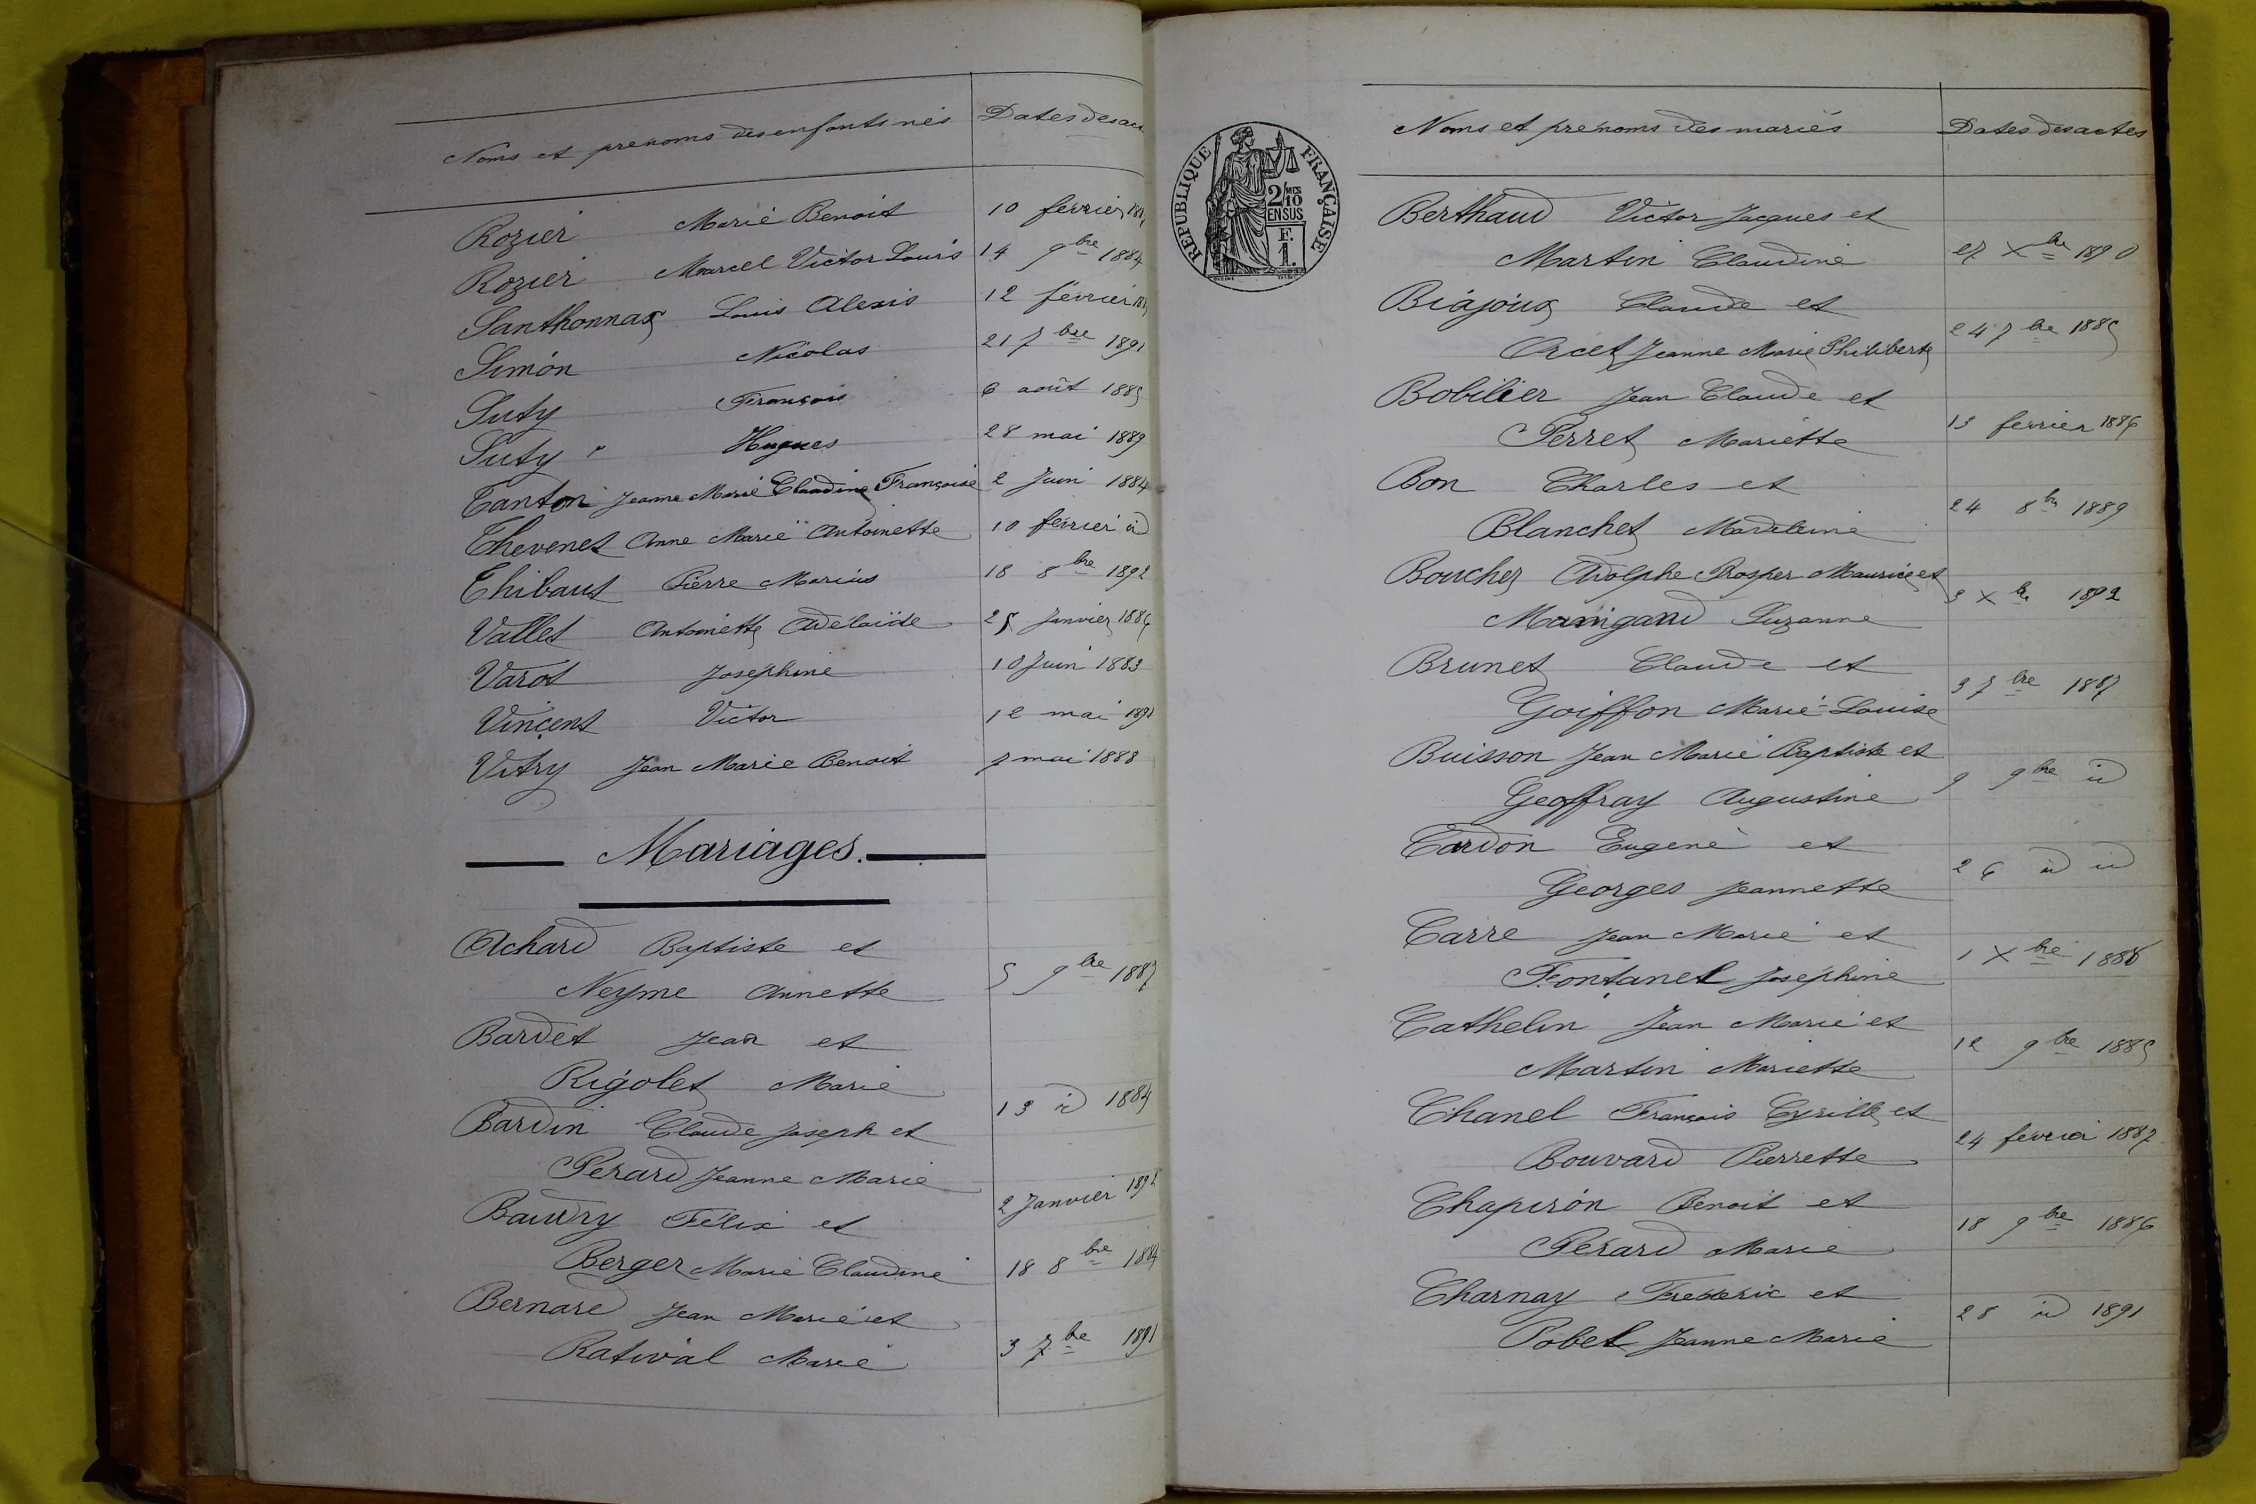 Noms et prenoms des enfants nés Dates des
Rozier Marie Benoit 10 février
Rozier Marcel Victor Louis 14 9bre 1884
Santhonnax Louis Alexis 12 février
Simon Nicolas 21 7bre 1891
Suty François 6 août 1885
Suty Hugues 28 mai 1889
Tanton Jeanne Marie Claudine Françoise 2 Juin 1884
Thevenet Anne Marie Antoinette 10 février id
Thibaut Pierre Marius 18 8bre 1892
Vallet Antoinette Adelaïde 25 Janvier 1886
Varot Josephine 10 Juin 1883
Vincent Victor 12 mai
Vitry Jean Marie Benoit 7 mai 1888
Mariages.
Achard Baptiste et
Neyme Annette 5 9bre 1887
Bardet Jean et
Rigolet Marie 13 id 1884
Bardin Claude Joseph et
Perard Jeanne Marie 2 Janvier 1892
Baudry Félix et
Berger Marie Claudine 18 8bre 1884
Bernard Jean Marie et
Rativál Marie 3 7bre 1891
RÉPUBLIQUE FRANÇAISE
2/10 MES
EN SUS
F.
1.
Noms et prenoms des mariés Dates des actes
Berthaud Victor Jacques et
Martin Claudine 27 Xbre 1890
Biajoux Claude et
Orcet Jeanne Marie Philiberte 24 7bre 1885
Bobilier Jean Claude et
Perret Mariette 13 fevrier 1886
Bon Charles et
Blanchet Madeleine 24 8bre 1889
Boucher Adolphe Prosper Maurice et
Maingaud Suzanne 3 Xbre 1892
Brunet Claude et
Goiffon Marie-Louise 3 7bre 1887
Buisson Jean Marie Baptiste et
Geoffray Augustine 9 9bre id
Cardon Eugene et
Georges Jeannette 26 id id
Carre Jean Marie et
Fontanel Josephine 1 Xbre 1888
Cathelin Jean Marie et
Martin Mariette 12 9bre 1885
Chanel François Cyrille et
Bouvard Pierrette 24 fevrier 1887
Chapiron Benoit et
Perard Marie 18 9bre 1886
Charnay Frederic et
Pobel Jeanne Marie 28 id 1891